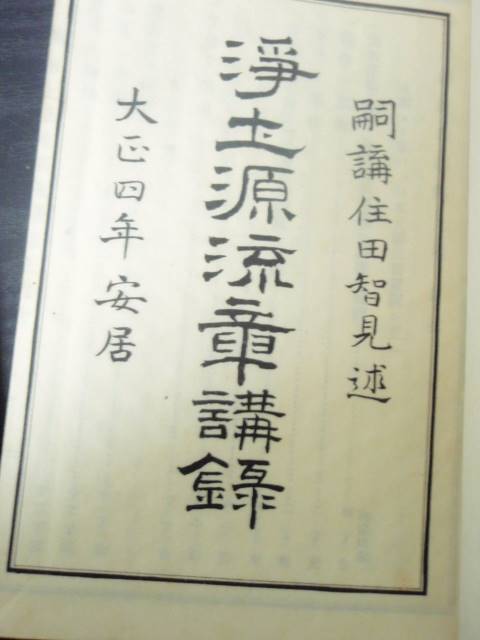 嗣講住田智見述
淨土源流章講録
大正四年安居